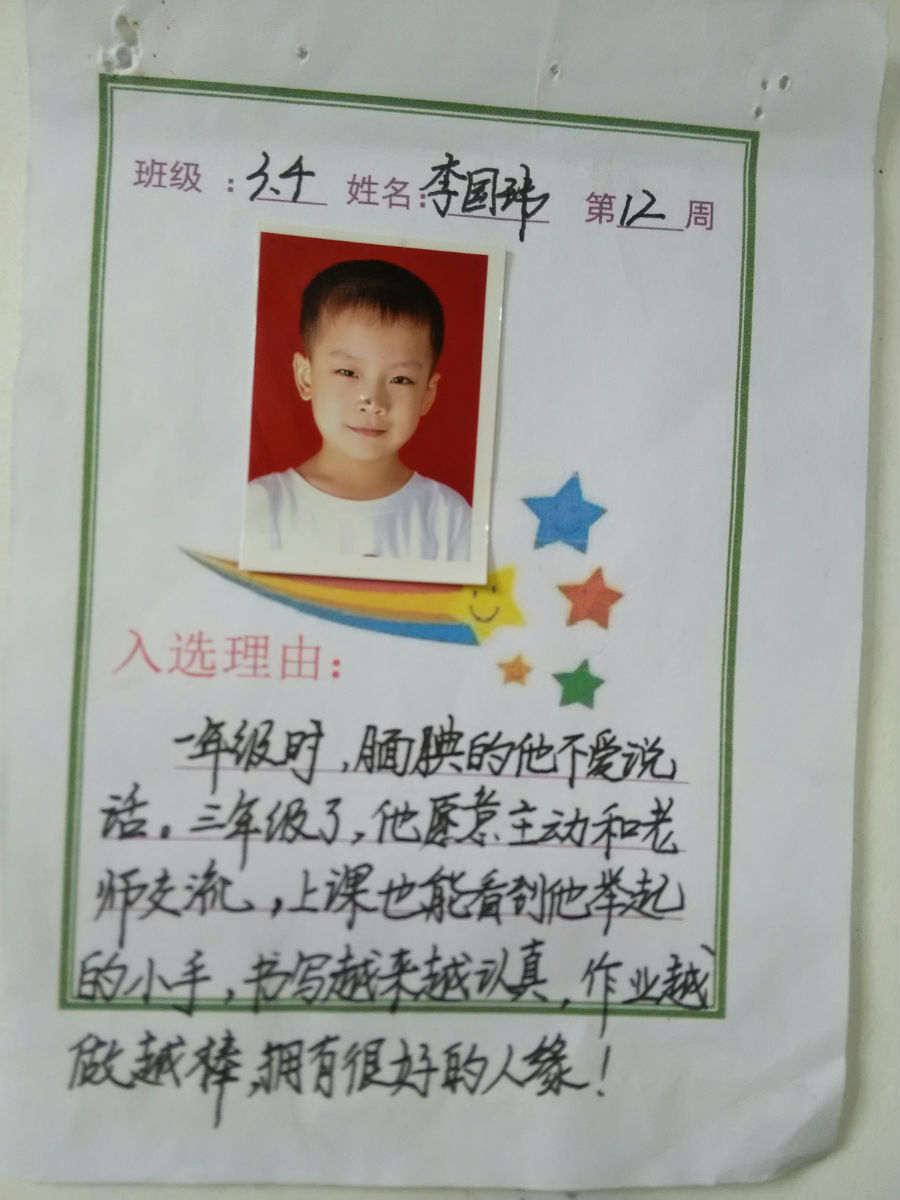 班级：3.4 姓名：李国玮 第12周
入选理由：
一年级时，腼腆的他不爱说
话。三年级了，他愿意主动和老
师交流，上课也能看到他举起
的小手，书写越来越认真，作业越
做越棒，拥有很好的人缘！